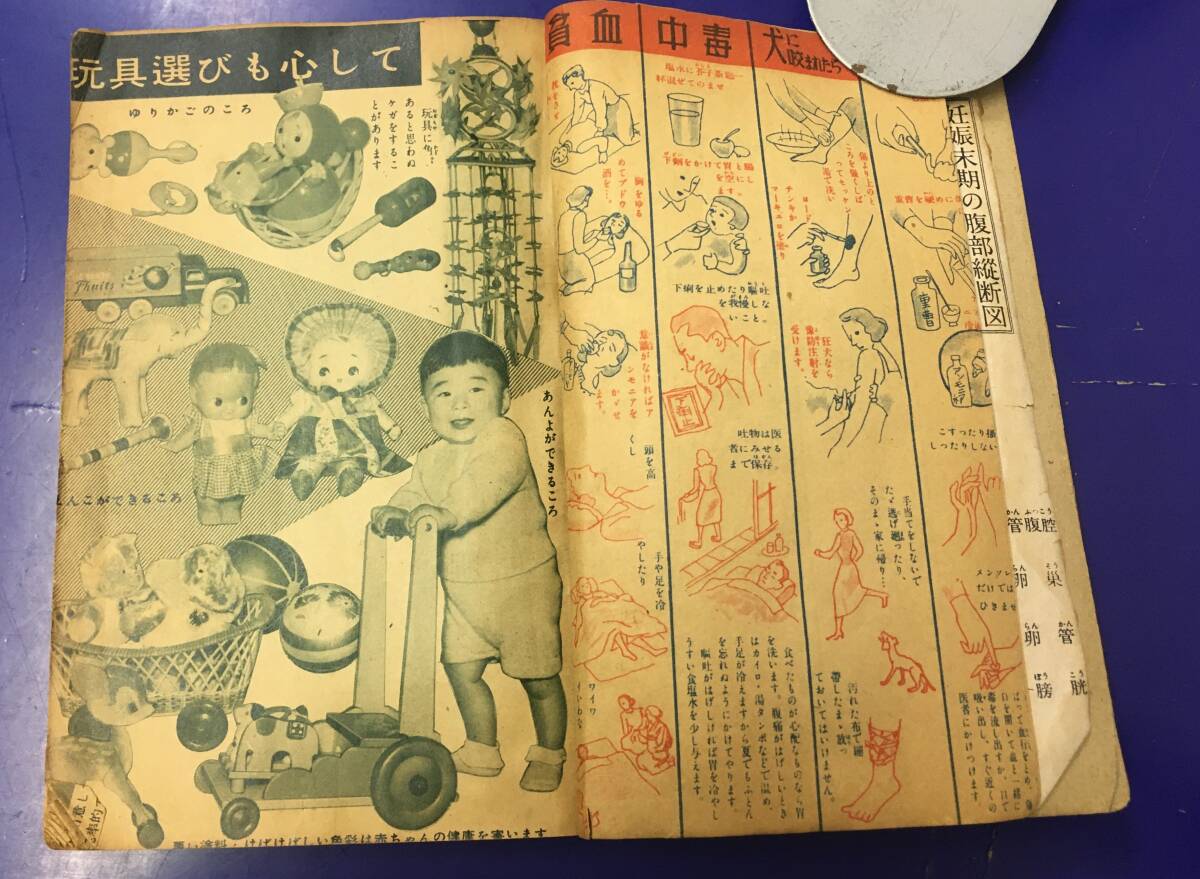 玩具選びも心して
ゆりかごのころ
玩具に角が
あると思わぬ
ケガをするこ
とがあります
Fruits
あんよができるころ
んこができるころ
悪い塗料・けばけばしい色彩は赤ちゃんの健康を害います
貧血
中毒
犬に咬まれたら
胸をゆる
めてブドウ
酒を…。
意識がなければア
ンモニアを
かゞせ
ます。
頭を高
くし
手や足を冷
やしたり
ワイワイ
塩水に芥子茶匙一
杯混ぜてのませ
下剤をかけて胃と腸
を空にし
ます。
下痢を止めたり嘔吐
を我慢しな
いこと。
下痢止
吐物は医
者にみせる
まで保存。
食べたものが心配なものなら胃
を洗います。腹痛がはげしいとき
はカイロ・湯タンポなどで温め、
手足が冷えますから夏でもふとん
を忘れぬようにかけてやります。
嘔吐がはげしければ胃を冷やし
うすい食塩水を少し与えます。
傷より上のと
ころを強くしば
ってセッケン
湯で洗い
ヨード
チンキか
マーキュロを塗り
狂犬なら
予防注射を
受けます。
手当てをしないで
たゞ逃げ廻ったり、
そのまゝ家に帰り…
汚れた布で繃
帯したまゝ放っ
ておいてはいけません。
重曹を硬めに
重曹
アンモニア水
こすったり掻
いたりしない
メンソレ
だけでは
ひきませ
口を開いて血と一緒に
毒を流し出すか、口で
吸い出し、すぐ近くの
医者にかけつけます。
妊娠末期の腹部縦断図
腹腔
管
卵巣
卵管
膀胱